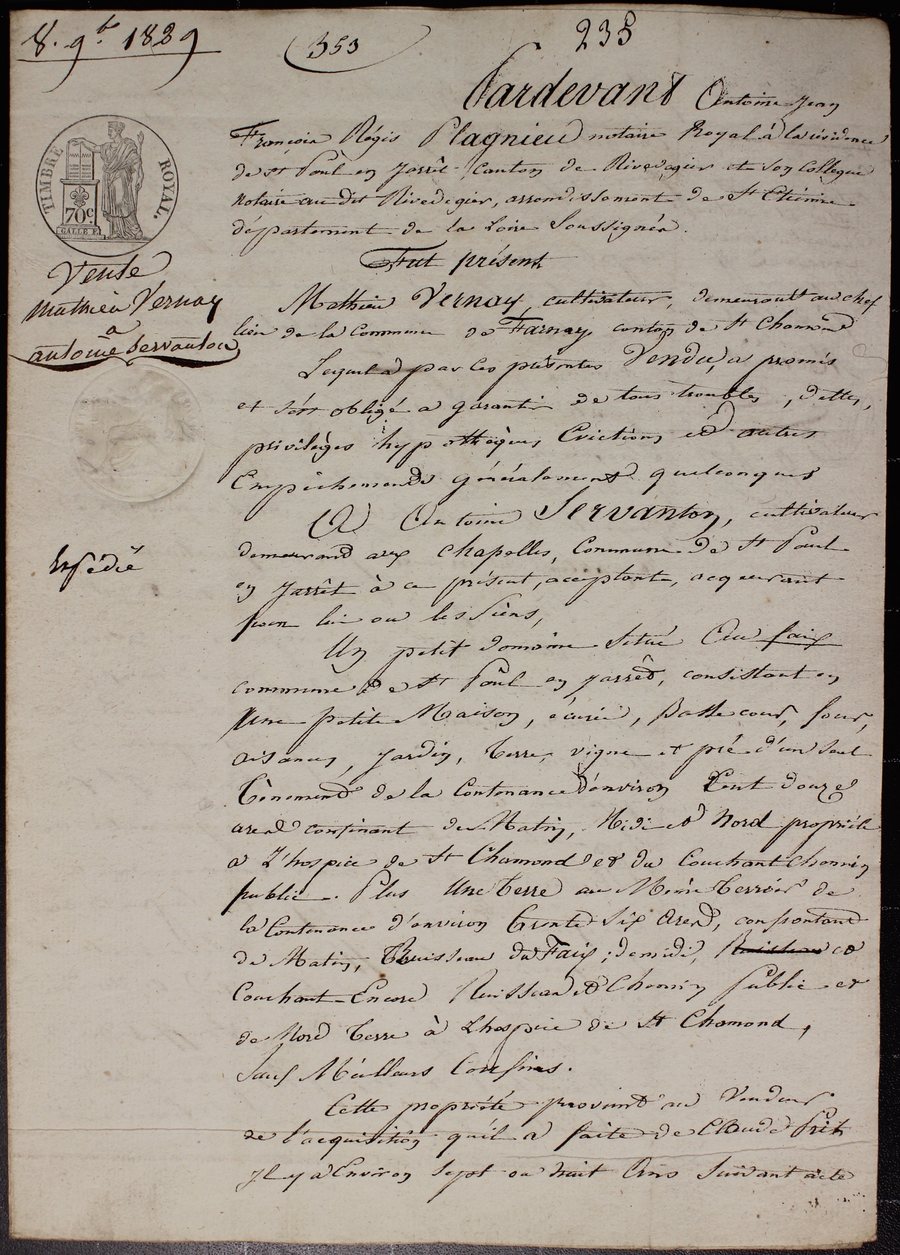 8. 9bre 1829
353
235
Pardevant Antoine Jean
François Régis Plagnieu notaire Royal à la résidence
de St Pôul en Jarrêt Canton de Rivedegier et son Collegue
notaire au dit Rivedegier, arrondissement de St Etienne
département de la Loire Soussignés.
TIMBRE ROYAL.
70c
GALLE F.
Vente
Mathieu Vernay
a
antoine Servanton
Fut présent
Mathieu Vernay, cultivateur, demeurant au chef
lieu de la Commune de Farnay canton de St Chamond
Lequel a par ces présentes Vendu, a promis
et s'est obligé a garantir de tous troubles, dettes,
privilèges hypothèques, Evictions et autres
Empêchements généralement quelconques
A Antoine Servanton, cultivateur
demeurand aux Chapelles, Commune de St Paul
en Jarrêt à ce présent, acceptant, acquerant
pour lui ou les Siens,
Expédié
Un petit domaine Situé Au faix
commune de St Pôul en Jarrêt, consistant en
Une petite Maison, écurie, Basse cour, four,
aisances, Jardin, terre, vigne et pré d'un seul
Tènement de la Contenance d'environ Cent douze
ares confinant de Matin, Midi et Nord propriété
a L'hospice de St Chamond et du Couchant Chemin
public. Plus Une terre au Même terroir de
la Contenance d'environ trente Six Ares, confrontant
de Matin, Ruisseau du Faix; de midi, et
Couchant Encore Ruisseau et Chemin Public et
de Nord terre à L'hospice de St Chamond,
Sauf Meilleurs Confins.
Cette propriété provient au Vendeur
de l'acquisition qu'il a faite de Claude
Il y a Environ Sept ou huit Ans Suivant acte